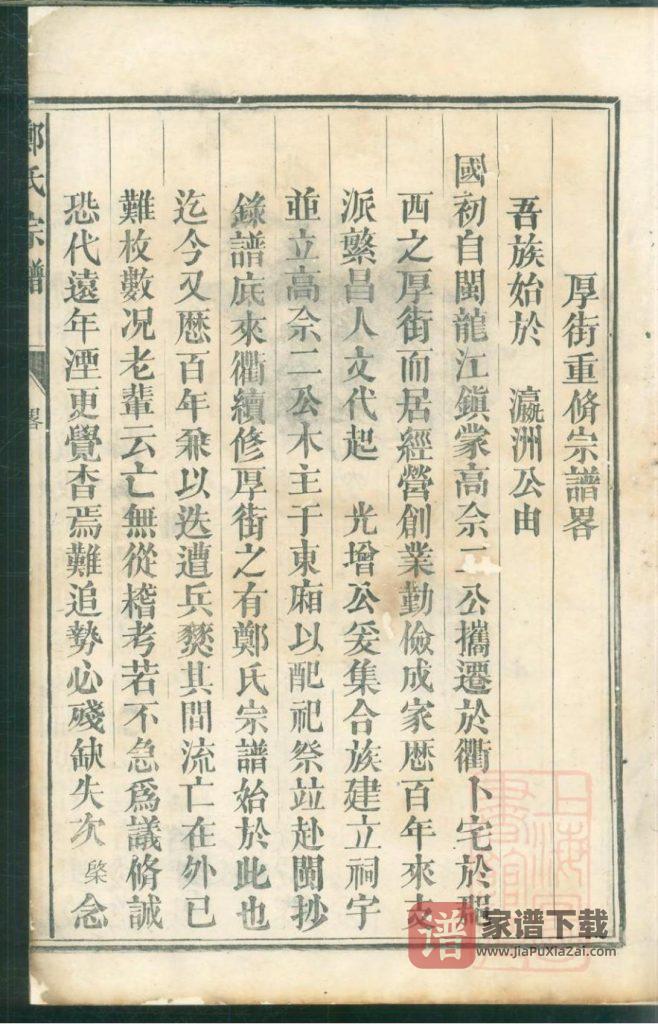 厚街重脩宗譜畧
吾族始於 瀛洲公由
國初自閩龍江鎮蒙高佘二公攜遷於衢卜宅於郡
西之厚街而居經營創業勤儉成家厯百年來支
派繁昌人文代起 光增公爰集合族建立祠宇
並立高佘二公木主于東廂以配祀祭竝赴閩抄
錄譜底來衢續修厚街之有鄭氏宗譜始於此也
迄今又厯百年兼以迭遭兵燹其間流亡在外已
難枚數况老輩云亡無從稽考若不急爲議脩誠
恐代遠年湮更覺杳焉難追勢必殘缺失次 棨念
鄭氏宗譜
畧
谱
家谱下载
www.JiaPuXiaZai.com
上海